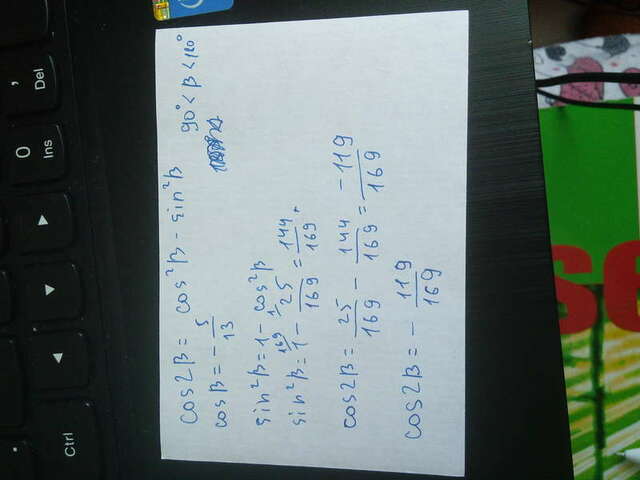 Ctrl
0
Ins
Del
cos2β = cos²β - sin²β
90° < β < 180°
cosβ = - 5/13
sin²β = 1 - cos²β
sin²β = 1 - 25/169 = 144/169.
cos2β = 25/169 - 144/169 = -119/169
cos2β = - 119/169